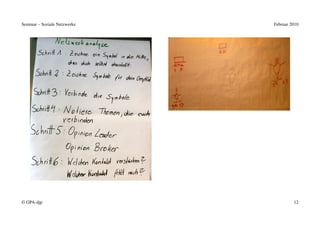 Seminar – Soziale Netzwerke
Februar 2010
Netzwerkanalyse
Schritt 1: Zeichne ein Symbol in der Mitte,
das dich selbst darstellt
Schritt 2: Zeichne Symbole für dein Umfeld
Schritt 3: Verbinde die Symbole
Schritt 4: Notiere Themen, die euch
verbinden
Schritt 5: Opinion Leader
Opinion Broker
Schritt 6: Welchen Kontakt verstärken?
Welcher Kontakt fehlt noch?
© GPA-djp
12